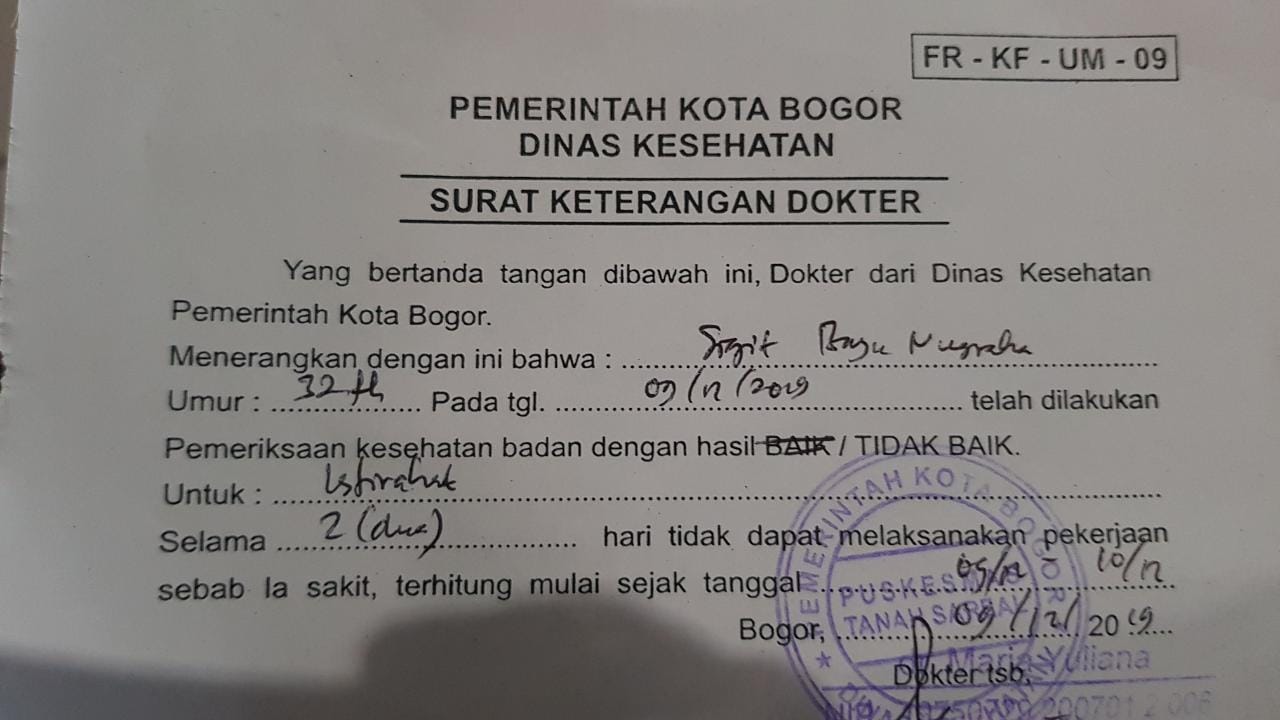 FR - KF - UM - 09
PEMERINTAH KOTA BOGOR
DINAS KESEHATAN
SURAT KETERANGAN DOKTER
Yang bertanda tangan dibawah ini, Dokter dari Dinas Kesehatan
Pemerintah Kota Bogor.
Menerangkan dengan ini bahwa : Sigit Bayu Nugraha
Umur : 32 th Pada tgl. 09/12/2019 telah dilakukan
Pemeriksaan kesehatan badan dengan hasil BAIK / TIDAK BAIK.
Untuk : Istirahat
Selama 2 (dua) hari tidak dapat melaksanakan pekerjaan
sebab Ia sakit, terhitung mulai sejak tanggal 09/12 10/12
Bogor, 09/12/ 2019
Dokter tsb,
PEMERINTAH KOTA BOGOR
PUSKESMAS
TANAH SAREAL
Maria Yuliana
200701 2 006